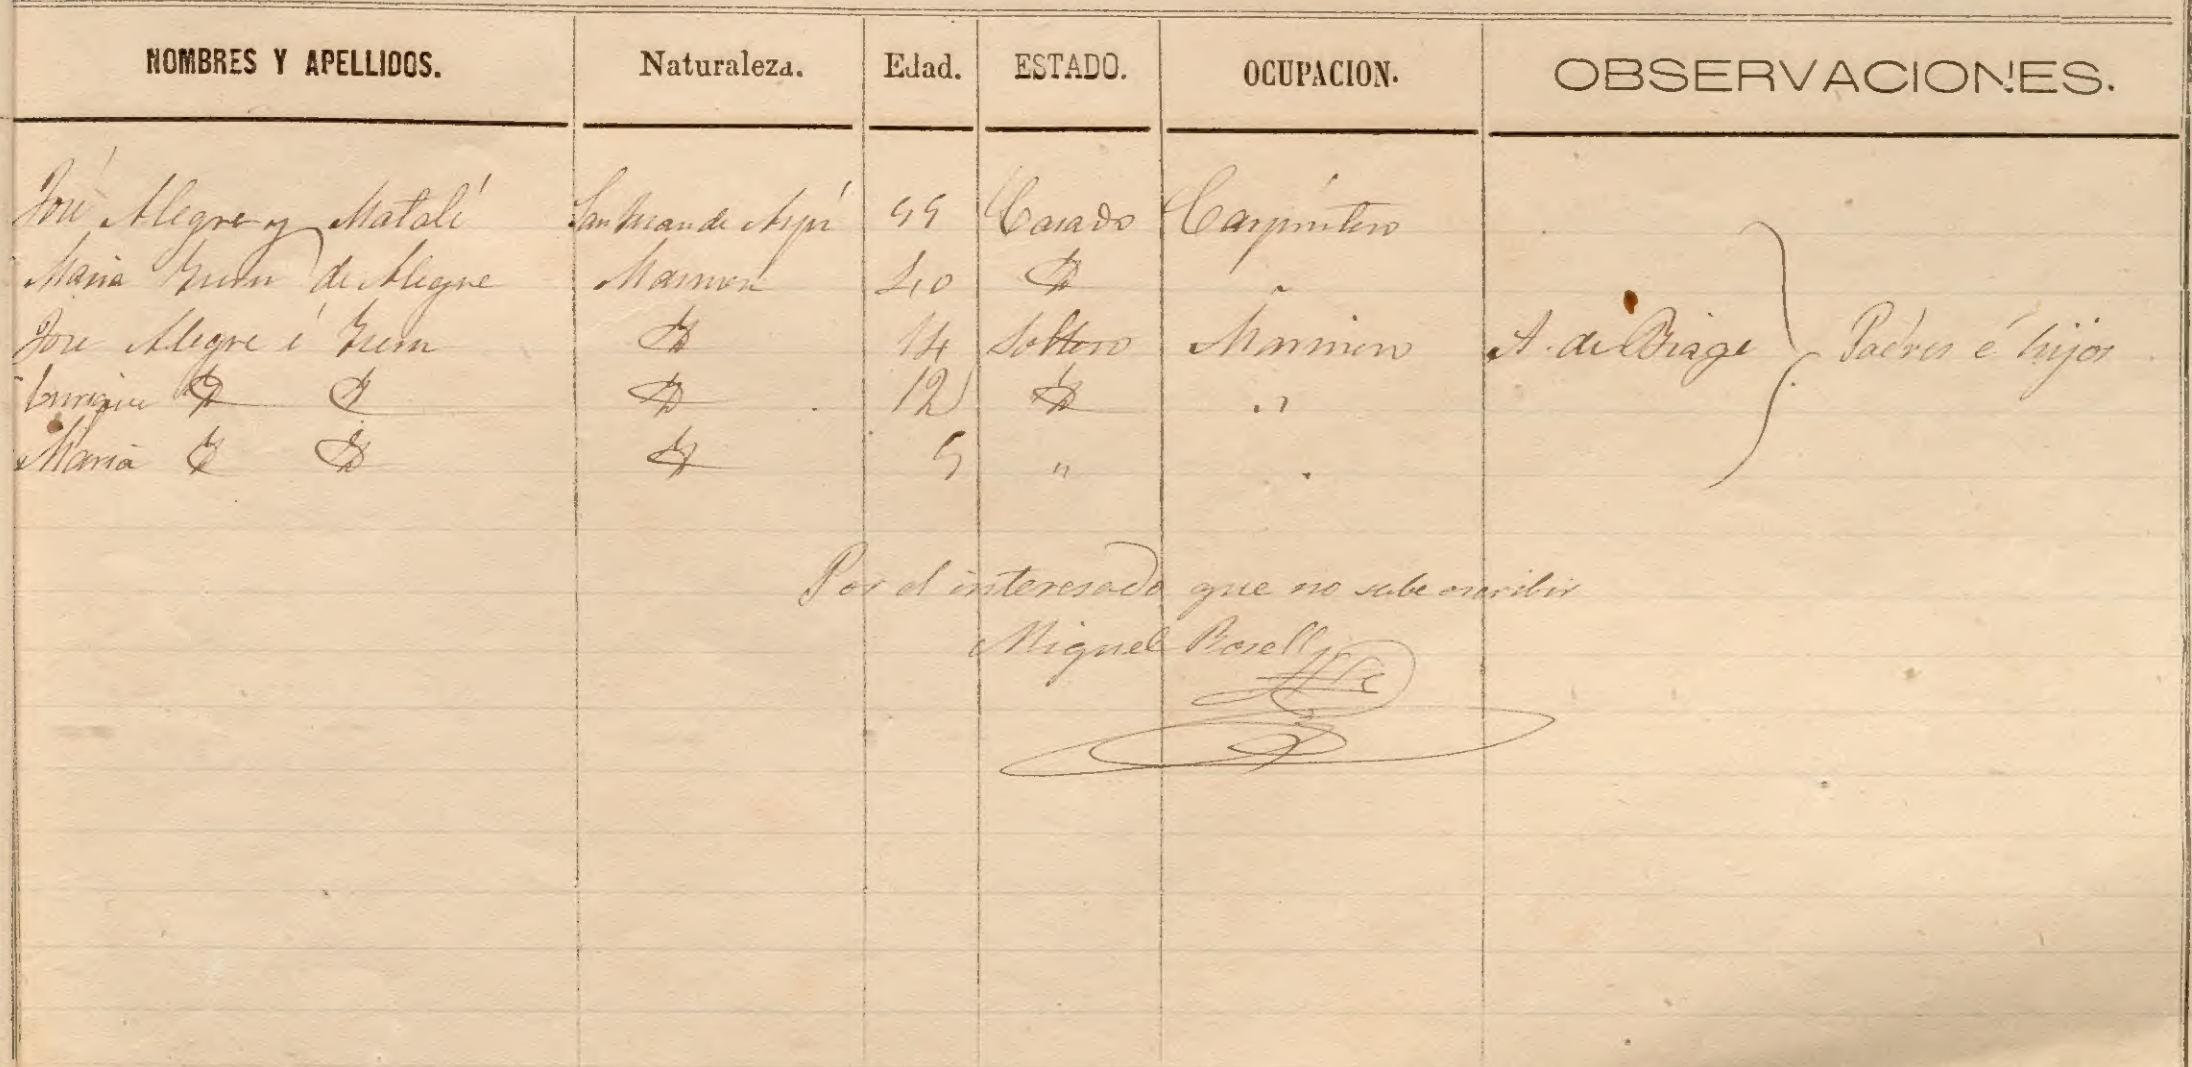 NOMBRES Y APELLIDOS. Naturaleza. Edad. ESTADO. OCUPACION. OBSERVACIONES.
José Alegre y Matalí San Juan de 55 Casado Carpintero
Maria de Alegre 40 Id
José Alegre é Id 14 Soltero Marinero A. de Viage Padres é hijos
Enrique Id Id Id 12 Id "
Maria Id Id Id 5 "
Por el interesado que no sabe escribir
Miguel Rosell